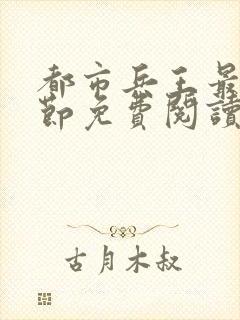 都市兵王最
節免費閱讀
古月木叔